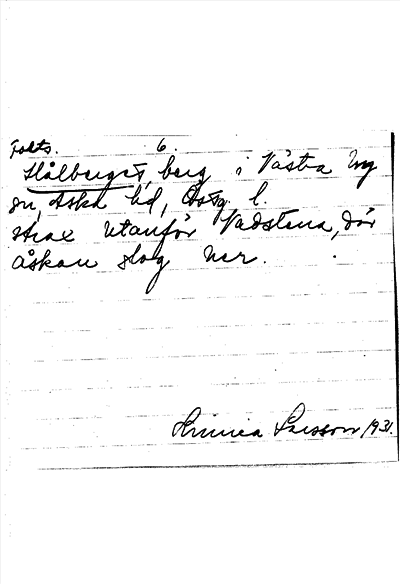 Forts. 6.
Hålberget, berg i Västra Ny
sn, Aska hd, Östg. l.
strax utanför Vadstena, där
åskan slog ner.
Linnea Larsson 1931.